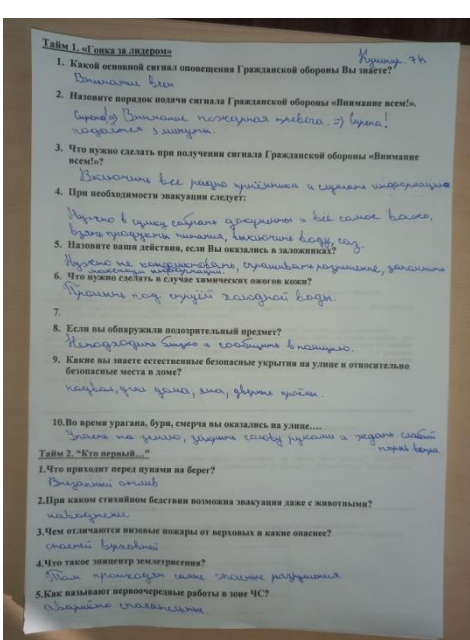 Тайм 1. «Гонка за лидером»
7К
1. Какой основной сигнал оповещения Гражданской обороны Вы знаете?
Внимание всем
2. Назовите порядок подачи сигнала Гражданской обороны «Внимание всем!».
Сирена! => Внимание пожарная тревога. => Сирена!
подаётся 3 минуты.
3. Что нужно сделать при получении сигнала Гражданской обороны «Внимание
всем!»?
Включить все радио приёмники и слушать информацию
4. При необходимости эвакуации следует:
Нужно в сумку собрать документы и всё самое важно,
взять продукты питания, выключить воду, газ.
5. Назовите ваши действия, если Вы оказались в заложниках?
Нужно не конфликтовать, спрашивать разрешение, запомнить
информации.
6. Что нужно сделать в случае химических ожогов кожи?
Промыть под струёй холодной воды.
7.
8. Если вы обнаружили подозрительный предмет?
Неподходить близко и сообщить в полицию.
9. Какие вы знаете естественные безопасные укрытия на улице и относительно
безопасные места в доме?
подвал, дома, яма, дверные проёмы.
10.Во время урагана, бури, смерча вы оказались на улице….
на землю, закрыть голову руками и ждать слабый
порыв ветра.
Тайм 2. “Кто первый…”
1.Что приходит перед цунами на берег?
Внезапный отлив
2.При каком стихийном бедствии возможна эвакуация даже с животными?
наводнение
3.Чем отличаются низовые пожары от верховых и какие опаснее?
опасней верховной
4.Что такое эпицентр землетрясения?
Там происходят самые опасные разрушения.
5.Как называют первоочередные работы в зоне ЧС?
аварийно спасательные.